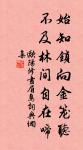 始知鎖向金籠聽
不及林間自在啼
歐陽修畫眉鳥詞典網
集